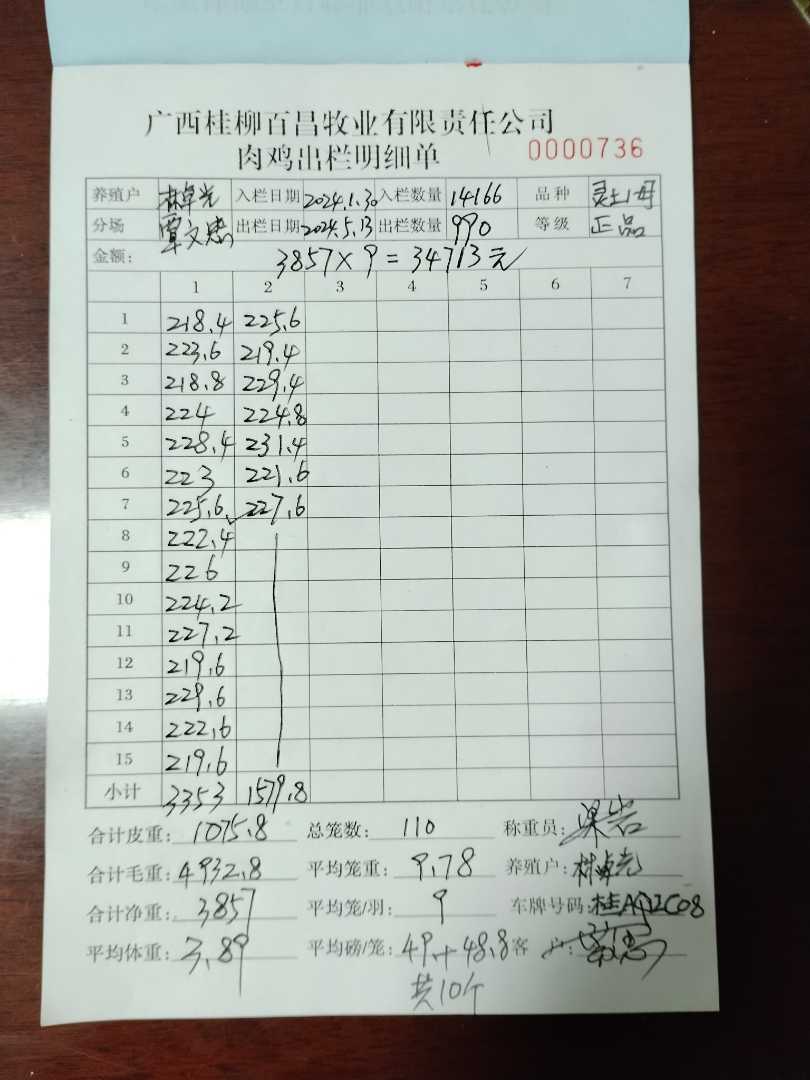 广西桂柳百昌牧业有限责任公司
肉鸡出栏明细单 0000736
养殖户 林卓光 入栏日期 2024.1.30 入栏数量 14166 品种 灵土1母
分场 覃文忠 出栏日期 2024.5.13 出栏数量 990 等级 正品
金额: 3857×9=34713元
1 2 3 4 5 6 7
1 218.4 225.6
2 223.6 219.4
3 218.8 229.4
4 224 224.8
5 228.4 231.4
6 223 221.6
7 225.6 227.6
8 222.4
9 226
10 224.2
11 227.2
12 219.6
13 229.6
14 222.6
15 219.6
小计 3353 1579.8
合计皮重: 1075.8 总笼数: 110 称重员: 梁岩
合计毛重: 4932.8 平均笼重: 9.78 养殖户: 林卓光
合计净重: 3857 平均笼/羽: 9 车牌号码:
平均体重: 3.89 平均磅/笼: 49.+48.8 客户:
共10个